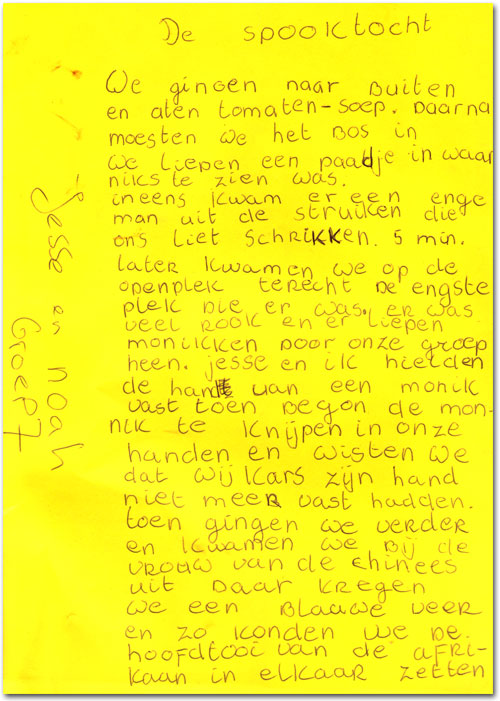 De spooktocht
We gingen naar Buiten
en aten tomaten-soep. Daarna
moesten we het Bos in
We liepen een paadje in waar
niks te zien was.
ineens kwam er een enge
man uit de struiken die
ons liet schrikken. 5 min.
later kwamen we op de
openplek terecht De engste
plek Die er was. er was
veel rook en er liepen
monikken Door onze groep
heen. jesse en ik hielden
de hand van een monik
vast toen Begon de mon-
nik te knijpen in onze
handen en wisten we
dat wij Kars zijn hand
niet meer vast hadden.
toen gingen we verder
en kwamen we Bij de
vrouw van de chinees
uit Daar kregen
we een Blauwe veer
en zo konden we De
hoofdtooi van de afri-
kaan in elkaar zetten
Jesse en noah
Groep 7